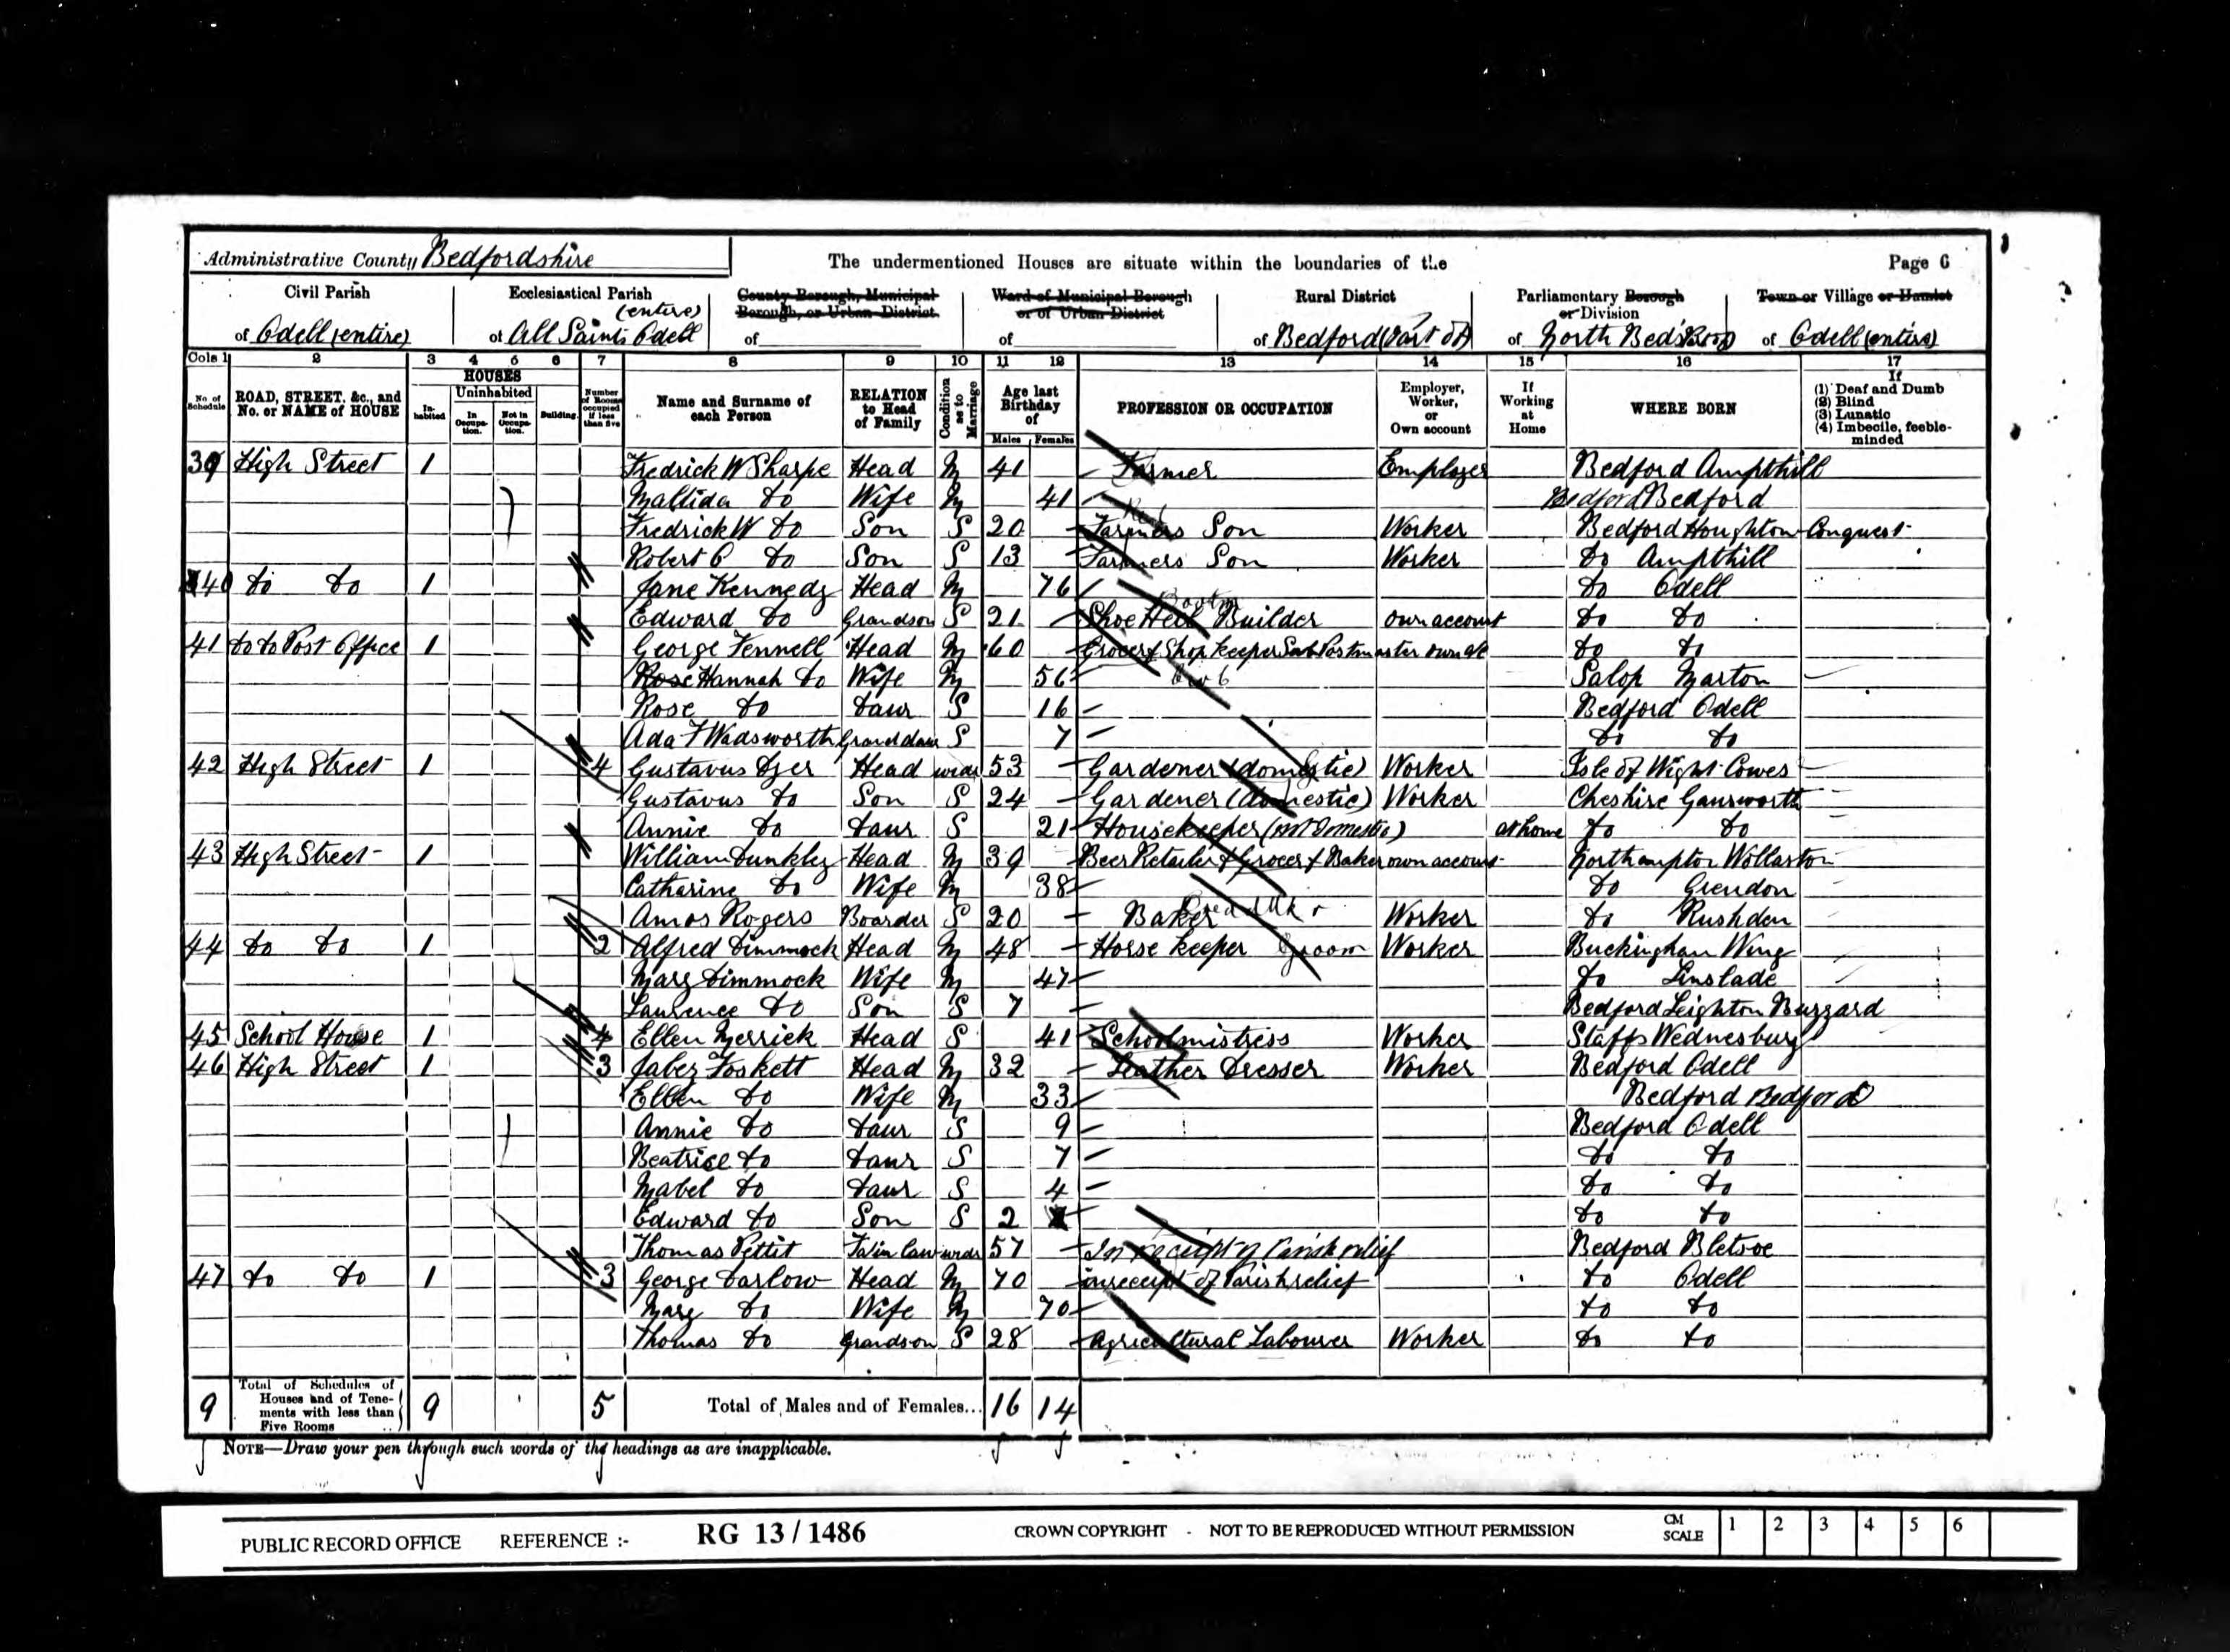 Administrative County Bedfordshire
The undermentioned Houses are situate within the boundaries of the
Page 6
Civil Parish of Odell (entire)
Ecclesiastical Parish (entire) of All Saints Odell
County Borough, Municipal Borough, or Urban District of
Ward of Municipal Borough or of Urban District of
Rural District of Bedford (Part of)
Parliamentary Borough or Division of North Beds
Town or Village or Hamlet of Odell (entire)
Cols 1 2 3 4 5 6 7 8 9 10 11 12 13 14 15 16 17
No. of Schedule
ROAD, STREET, &c., and No. or NAME of HOUSE
HOUSES
Inhabited
Uninhabited
In Occupation.
Not in Occupation.
Building.
Number of Rooms occupied if less than five
Name and Surname of each Person
RELATION to Head of Family
Condition as to Marriage
Age last Birthday of
Males Females
PROFESSION OR OCCUPATION
Employer, Worker, or Own account
If Working at Home
WHERE BORN
If
(1) Deaf and Dumb
(2) Blind
(3) Lunatic
(4) Imbecile, feeble-minded
39 High Street 1 Fredrick W Sharpe Head M 41 Farmer Employer Bedford Ampthill
Matlida Do Wife M 41 Bedford Bedford
Fredrick W Do Son S 20 Farmers Son Worker Bedford Houghton Conquest
Robert C Do Son S 13 Farmers Son Worker Do Ampthill
40 Do Do 1 Jane Kennedy Head M 76 Do Odell
Edward Do Grandson S 21 Shoe Heel Builder own account Do Do
41 Do Do Post Office 1 George Fennell Head M 60 Grocer & Shop Keeper Sub Postmaster own ac Do Do
Rose Hannah Do Wife M 56 Salop Marton
Rose Do Daur S 16 Bedford Odell
Ada F Wadsworth Grand daur S 7 Do Do
42 High Street 1 4 Gustavus Dyer Head widr 53 Gardener (domestic) Worker Isle of Wight Cowes
Gustavus Do Son S 24 Gardener (domestic) Worker Cheshire Gawsworth
Annie Do Daur S 21 Housekeeper (not Domestic) at home Do Do
43 High Street 1 William Dunkley Head M 39 Beer Retailer & Grocer & Baker own account Northampton Wollaston
Catharine Do Wife M 38 Do Grendon
Amos Rogers Boarder S 20 Baker Worker Do Rushden
44 Do Do 1 2 Alfred Dimmock Head M 48 Horse keeper Groom Worker Buckingham Wing
Mary Dimmock Wife M 47 Do Linslade
Laurence Do Son S 7 Bedford Leighton Buzzard
45 School House 1 4 Ellen Merrick Head S 41 Schoolmistress Worker Staffs Wednesbury
46 High Street 1 3 Jabez Foskett Head M 32 Leather Dresser Worker Bedford Odell
Ellen Do Wife M 33 Bedford Bedford
Annie Do Daur S 9 Bedford Odell
Beatrice Do Daur S 7 Do Do
Mabel Do Daur S 4 Do Do
Edward Do Son S 2 Do Do
Thomas Pettit Fa in law widr 57 In receipt of Parish relief Bedford Bletsoe
47 Do Do 1 3 George Darlow Head M 70 in receipt of Parish relief Do Odell
Mary Do Wife M 70 Do Do
Thomas Do Grandson S 28 Agricultural Labourer Worker Do Do
9 Total of Schedules of Houses and of Tenements with less than Five Rooms 9 5 Total of Males and of Females... 16 14
NOTE—Draw your pen through such words of the headings as are inapplicable.
PUBLIC RECORD OFFICE REFERENCE :- RG 13 / 1486 CROWN COPYRIGHT - NOT TO BE REPRODUCED WITHOUT PERMISSION CM SCALE 1 2 3 4 5 6